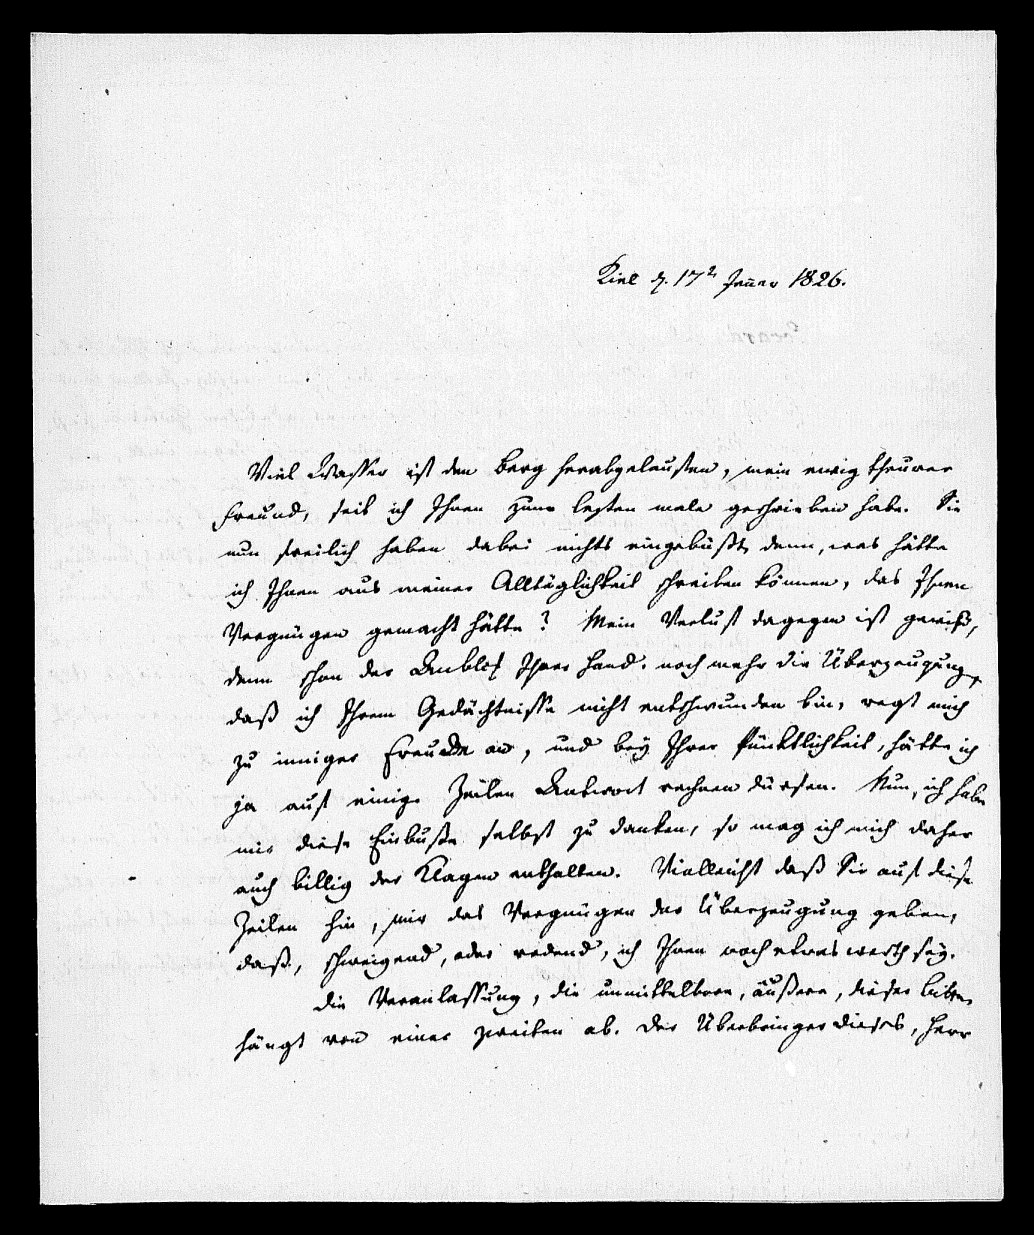 Kiel d. 17t Jenner 1826.
Viel Wasser ist den Berg herabgelaufen, mein ewig theurer
Freund, seit ich Ihnen zum lezten male geschrieben habe. Sie
nun freilich haben dabei nichts eingebüßt, denn, was hätte
ich Ihnen aus meiner Alltäglichkeit schreiben können, das Ihnen
Vergnügen gemacht hätte? Mein Verlust dagegen ist gewiß,
denn schon der Anblick Ihrer Hand, noch mehr die Überzeugung,
daß ich Ihrem Gedächtnisse nicht entschwunden bin, regt mich
zu inniger Freude an, und bey Ihrer Pünktlichkeit, hätte ich
ja auf einige Zeilen Antwort rechnen dürfen. Nun, ich habe
mir diese Einbuße selbst zu danken, so mag ich mich daher
auch billig der Klagen enthalten. Vielleicht daß Sie auf diese
Zeilen hin, mir das Vergnügen der Überzeugung geben,
daß, schweigend, oder redend, ich Ihnen noch etwas werth sey.
Die Veranlassung, die unmittelbare, äußere, dieser Bitte,
hängt von einer zweiten ab. Der Überbringer dieses, Herr